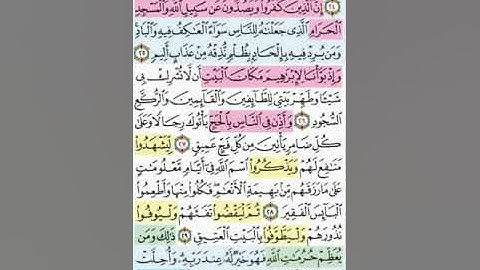 ٢٤ إِنَّ الَّذِينَ كَفَرُوا وَيَصُدُّونَ عَن سَبِيلِ اللَّهِ وَالْمَسْجِدِ
الْحَرَامِ الَّذِي جَعَلْنَاهُ لِلنَّاسِ سَوَاءً الْعَاكِفُ فِيهِ وَالْبَادِ
وَمَن يُرِدْ فِيهِ بِإِلْحَادٍ بِظُلْمٍ نُّذِقْهُ مِنْ عَذَابٍ أَلِيمٍ ٢٥
وَإِذْ بَوَّأْنَا لِإِبْرَاهِيمَ مَكَانَ الْبَيْتِ أَن لَّا تُشْرِكْ بِي
شَيْئًا وَطَهِّرْ بَيْتِيَ لِلطَّائِفِينَ وَالْقَائِمِينَ وَالرُّكَّعِ
السُّجُودِ ٢٦ وَأَذِّن فِي النَّاسِ بِالْحَجِّ يَأْتُوكَ رِجَالًا وَعَلَى
كُلِّ ضَامِرٍ يَأْتِينَ مِن كُلِّ فَجٍّ عَمِيقٍ ٢٧ لِّيَشْهَدُوا
مَنَافِعَ لَهُمْ وَيَذْكُرُوا اسْمَ اللَّهِ فِي أَيَّامٍ مَّعْلُومَاتٍ
عَلَى مَا رَزَقَهُم مِّن بَهِيمَةِ الْأَنْعَامِ فَكُلُوا مِنْهَا وَأَطْعِمُوا
الْبَائِسَ الْفَقِيرَ ٢٨ ثُمَّ لْيَقْضُوا تَفَثَهُمْ وَلْيُوفُوا
نُذُورَهُمْ وَلْيَطَّوَّفُوا بِالْبَيْتِ الْعَتِيقِ ٢٩ ذَلِكَ وَمَن
يُعَظِّمْ حُرُمَاتِ اللَّهِ فَهُوَ خَيْرٌ لَّهُ عِندَ رَبِّهِ وَأُحِلَّتْ